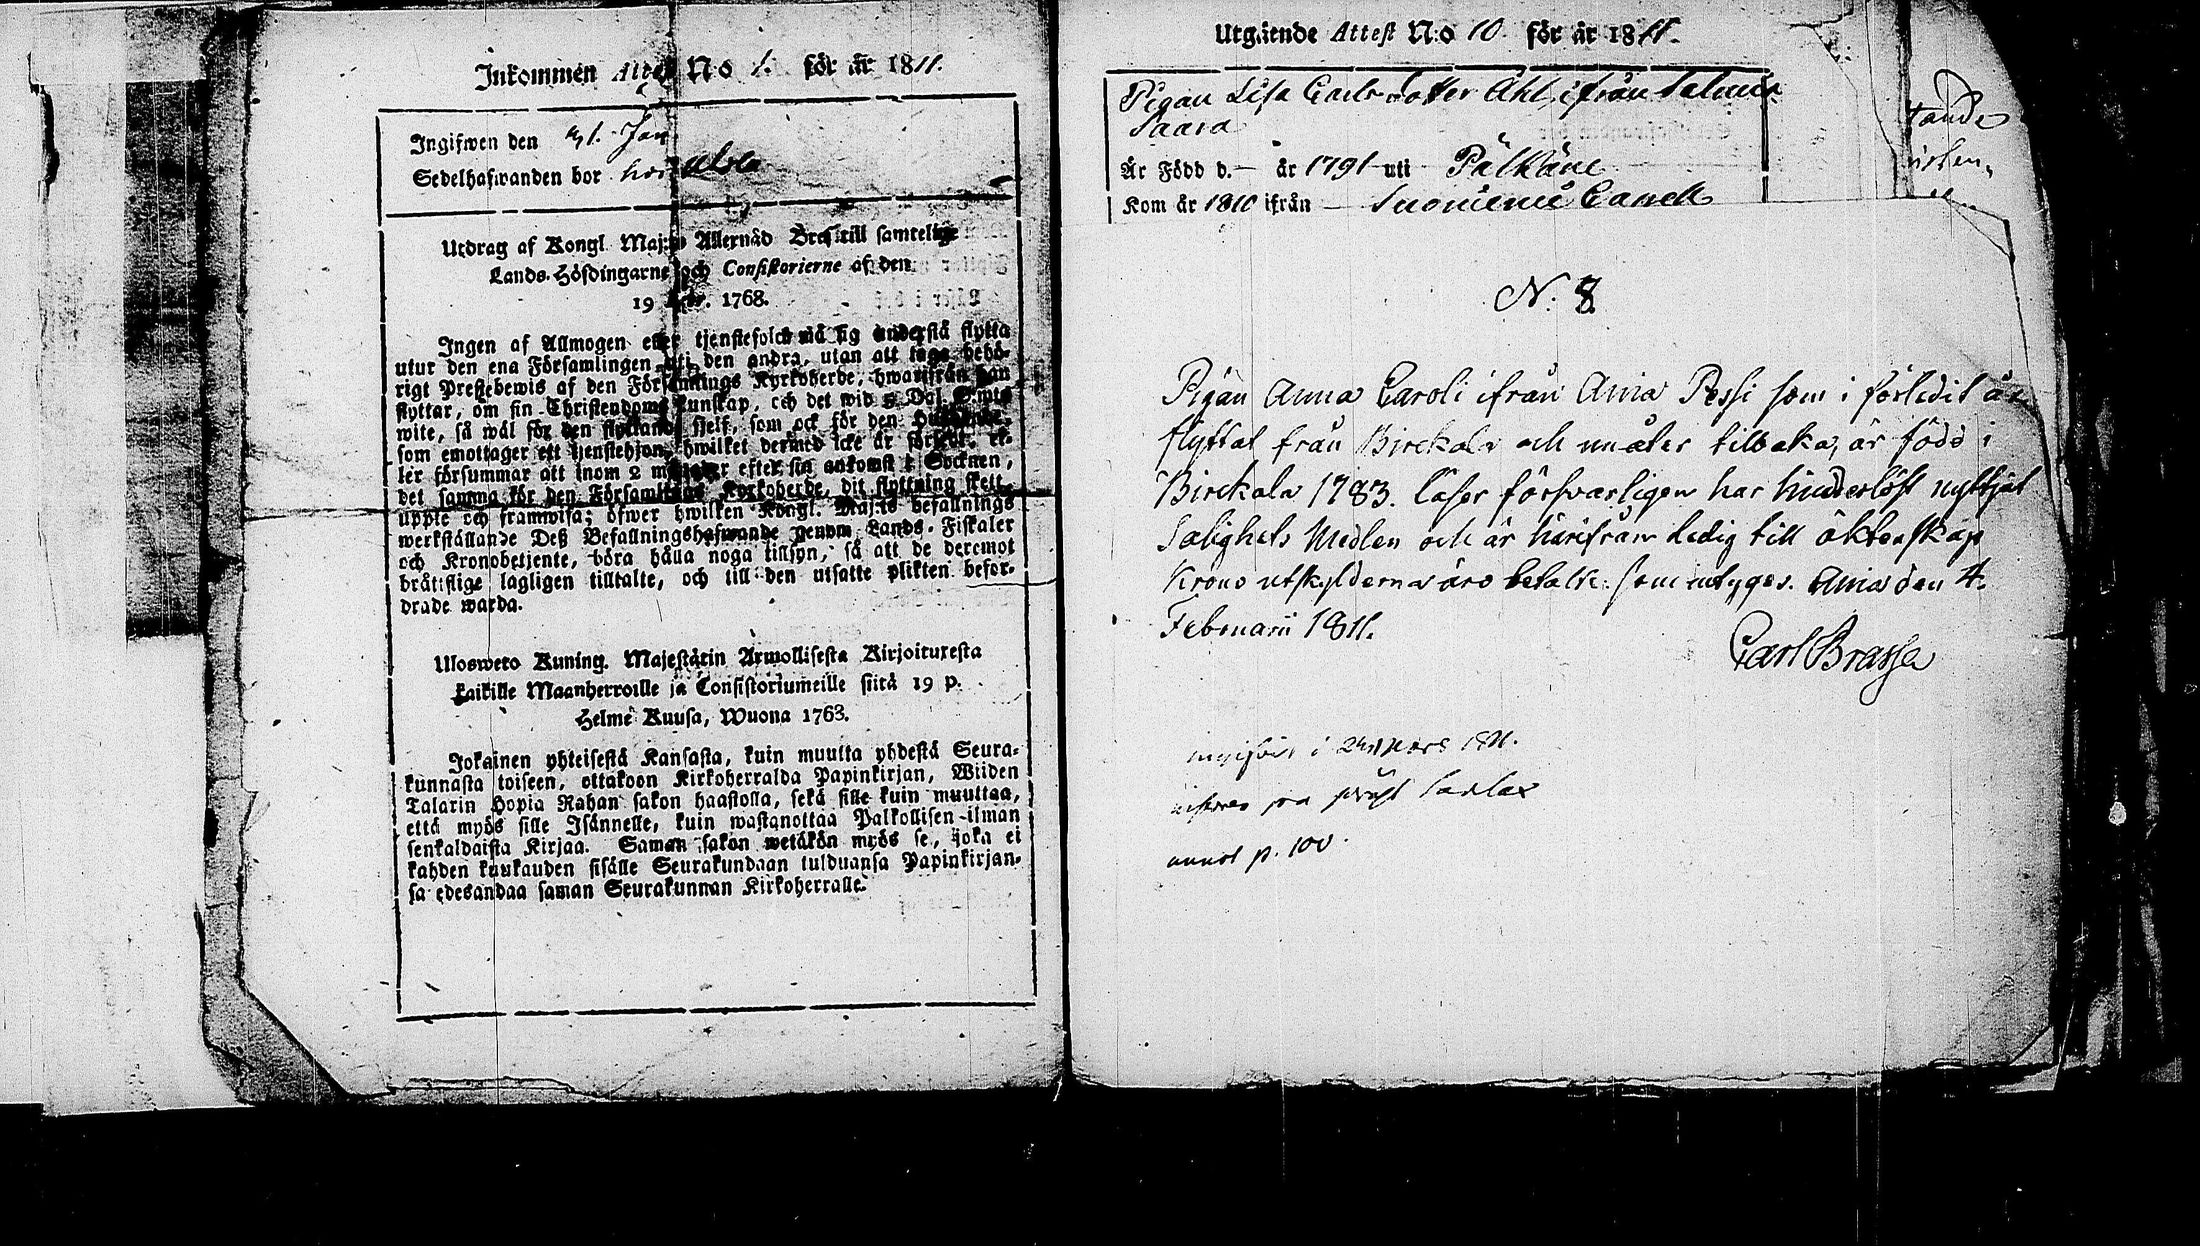 Inkommen Attest No 1. för år 1811.
Ingifwen den 21. Jan
Sedelhafwanden bor hos
Utdrag af Kongl. Maj:ts Allernåd Bref till samtelige
Lands-Höfdingarne och Consistorierne af den
19 Febr. 1768.
Ingen af Allmogen eller tjenstefolck må sig understå flytta
utur den ena Församlingen uti den andra, utan att taga behö-
rigt Prestebewis af den Församlings Kyrkoherde, hwarifrån han
flyttar, om sin Christendoms kunskap, och det wid 5 Dal. S:mts
wite, så wäl för den flyttande sjelf, som ock för den
som emottager ett tjenstehjon, hwilket dermed icke är försedt, el-
ler försummar att inom 2 månader efter sin ankomst i Socknen,
det samma för den Församlings Kyrkoherde, dit flyttning skett,
uppte och framwisa; öfwer hwilken Kongl. Maj:ts befallnings
werkställande Deß Befallningshafwande genom Lands-Fiskaler
och Kronobetjente, böra hålla noga tillsyn, så att de deremot
bråttslige lagligen tilltalte, och till den utsatte plikten befor-
drade warda.
Ulosweto Kuning. Majestätin Armollisesta Kirjoituxesta
kaikille Maanherroille ja Consistoriumeille siitä 19 p.
Helme Kuusa, Wuona 1763.
Jokainen yhteisestä Kansasta, kuin muutta yhdestä Seura-
kunnasta toiseen, ottakoon Kirkoherralda Papinkirjan, Wiiden
Talarin Hopia Rahan sakon haastolla, sekä sille kuin muuttaa,
että myös sille Isännelle, kuin wastanottaa Palkollisen ilman
senkaldaista Kirjaa. Saman sakon wetäkön myös se, joka ei
kahden kuukauden sisälle Seurakundaan tulduansa Papinkirjan-
sa edesandaa saman Seurakunnan Kirkoherralle.
Utgående Attest N:o 10. för år 1811.
Pigan Lisa Carlsdotter Ahl, ifrån Salmen
Saara
Är Född d. – år 1791 uti Pälkäne
Kom år 1810 ifrån – Suoniemi Capell
N. 8
Pigan Anna Caroli ifrån Ania Pessi som i förledit år
flyttat från Birckala och nu åter tilbaka, är född i
Birckala 1783. läser försvarligen har hinderlöst nyttjat
Salighets Medlen och är härifrån ledig till äktenskap
Krono utskylderna äro betalte. som intygas. Ania den 4.
Februarii 1811.
Carl Brasse
i 24 Mars 1811.
p. 100.